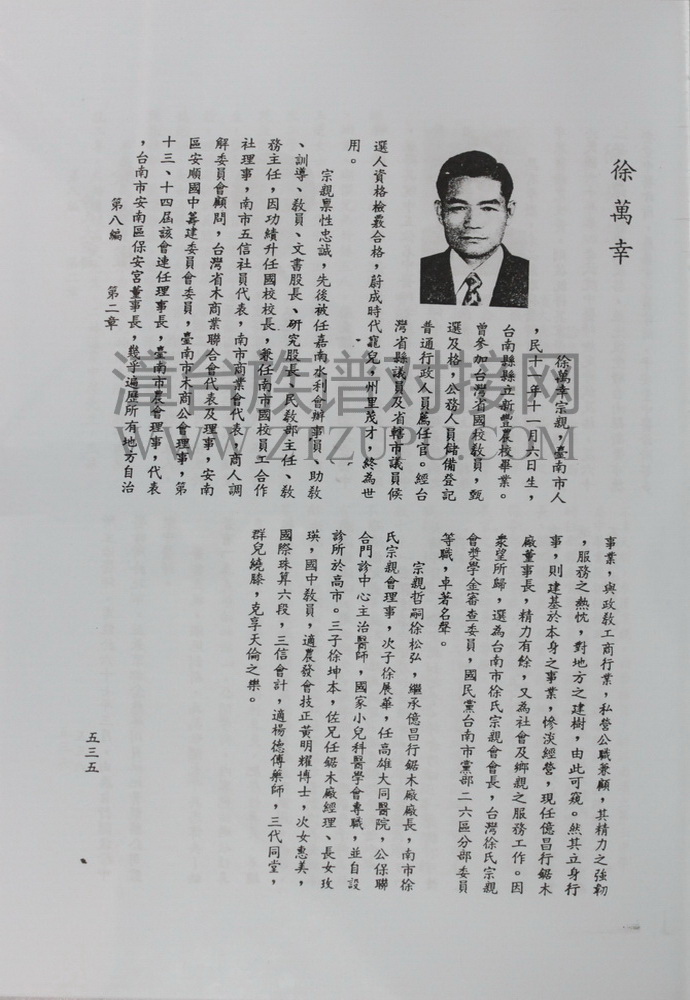 徐萬幸
徐萬幸宗親，臺南市人
，民十一年十一月六日生，
台南縣縣立新豐農校畢業。
曾參加台灣省國校教員，甄
選及格，公務人員儲備登記
普通行政人員薦任官。經台
灣省縣議員及省轄市議員候
選人資格檢覈合格，蔚成時代寵兒，州里茂才，終為世
用。
宗親稟性忠誠，先後被任嘉南水利會辦事員、助教
、訓導、教員、文書股長、研究股長、民教部主任、教
務主任，因功績升任國校校長，兼任南市國校員工合作
社理事，南市五信社員代表，南市商業會代表，商人調
解委員會顧問，台灣省木商業聯合會代表及理事，安南
區安順國中籌建委員會委員，臺南市木商公會理事，第
十三、十四屆該會連任理事長，臺南市農會理事，代表
，台南市安南區保安宮董事長，幾乎遍歷所有地方自治
第八編　第二章
事業，與政教工商行業，私營公職兼顧，其精力之強韌
，服務之熱忱，對地方之建樹，由此可窺。然其立身行
事，則建基於本身之事業，慘淡經營，現任億昌行鋸木
廠董事長，精力有餘，又為社會及鄉親之服務工作。因
眾望所歸，選為台南市徐氏宗親會會長，台灣徐氏宗親
會獎學金審查委員，國民黨台南市黨部二六區分部委員
等職，卓著名聲。
宗親哲嗣徐松弘，繼承億昌行鋸木廠廠長，南市徐
氏宗親會理事，次子徐展華，任高雄大同醫院，公保聯
合門診中心主治醫師，國家小兒科醫學會專職，並自設
診所於高市。三子徐坤本，佐兄任鋸木廠經理、長女玫
瑛，國中教員，適農發會技正黃明耀博士，次女惠美，
國際珠算六段，三信會計，適楊德傳藥師，三代同堂，
群兒繞膝，克享天倫之樂。
五三五
漳台族谱对接网
WWW.ZTZUPU.COM